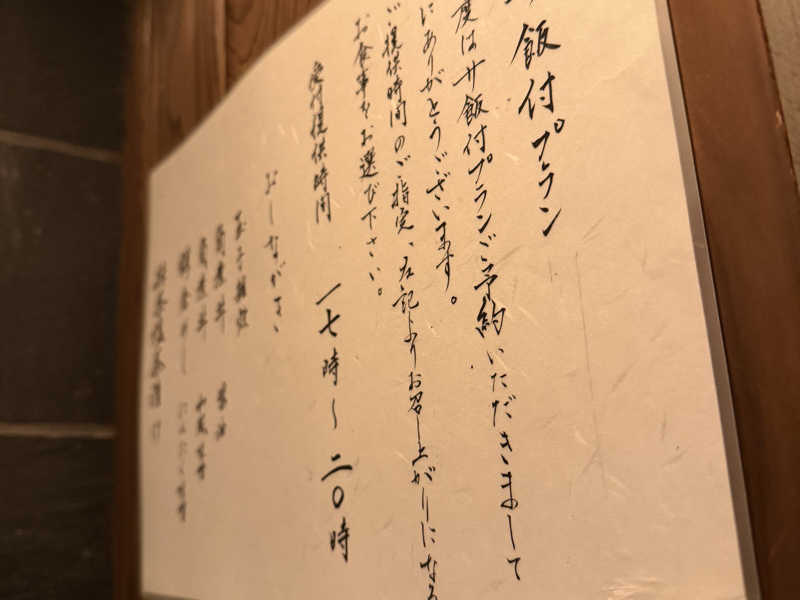 飯付プラン
度はサ飯付プランご予約いただきまして
にありがとうございます。
ご提供時間のご指定、左記よりお召し上がりになる
お食事をお選び下さい。
受付提供時間 一七時〜二〇時
おしながき
玉子雑炊
角煮丼 醤油
角煮丼